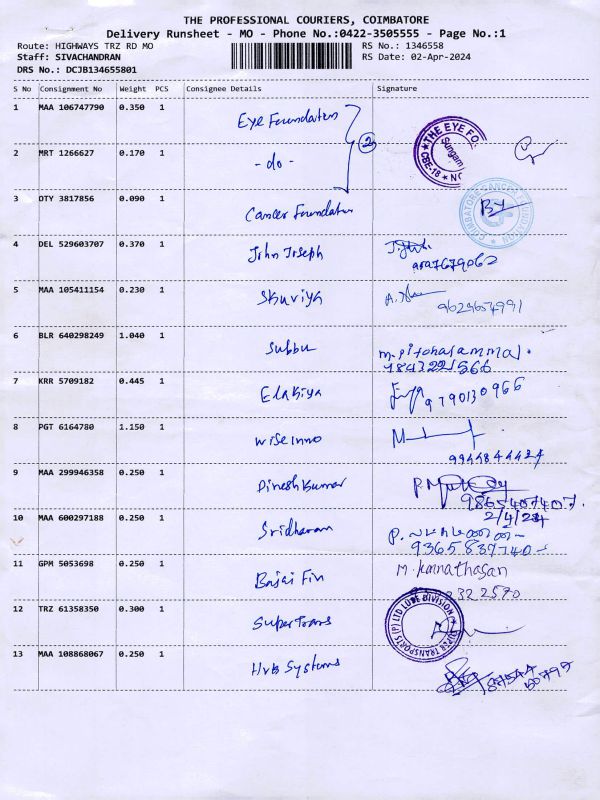 THE PROFESSIONAL COURIERS, COIMBATORE
Delivery Runsheet - MO - Phone No.:0422-3505555 - Page No.:1
Route: HIGHWAYS TRZ RD MO RS No.: 1346558
Staff: SIVACHANDRAN RS Date: 02-Apr-2024
DRS No.: DCJB134655801
S No Consignment No Weight PCS Consignee Details Signature
1 MAA 106747790 0.350 1 Eye Foundation
THE EYE FO
Sungam
CBE-18
2 MRT 1266627 0.170 1 - do - 2
3 OTY 3817856 0.090 1 Cancer Foundation
COIMBATORE CANCER FOUNDATION
4 DEL 529603707 0.370 1 John Joseph
5 MAA 105411154 0.230 1
9629654991
6 BLR 640298249 1.040 1 Subbu
7 KRR 5709182 0.445 1 Elakiya
9790130966
8 PGT 6164780 1.150 1 Wise inno
9944844424
9 MAA 299946358 0.250 1 Dinesh Kumar
9865407407.
2/4/24
10 MAA 600297188 0.250 1 Sridharan
9365837740
11 GPM 5053698 0.250 1 Bajaj Fin M. Kannathasan
322570
12 TRZ 61358350 0.300 1 Super Trans
SUPER TRANSPORTS (P) LTD LUBE DIVISION
13 MAA 108868067 0.250 1 Hvb Systems